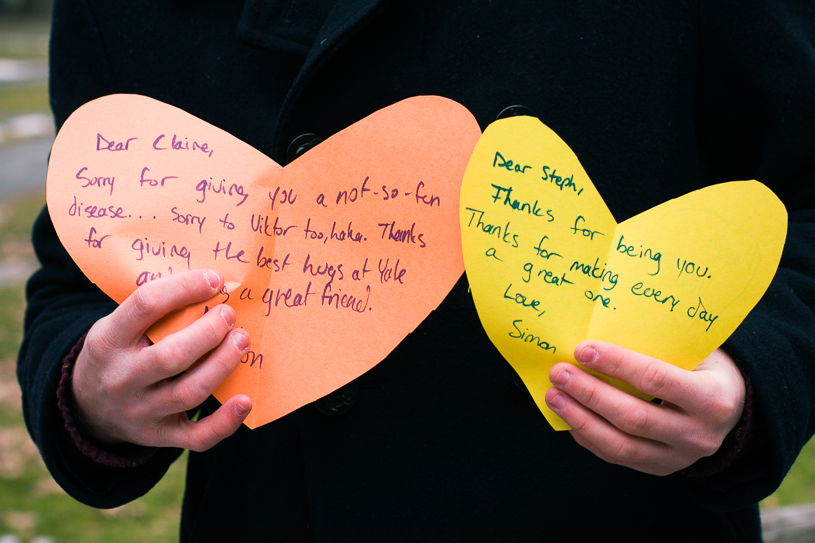 Dear Claire,
Sorry for giving you a not-so-fun
disease... Sorry to Viktor too, haha. Thanks
for giving the best hugs at Yale
and a great friend.
on
Dear Steph,
Thanks for being you.
Thanks for making every day
a great one.
Love,
Simon